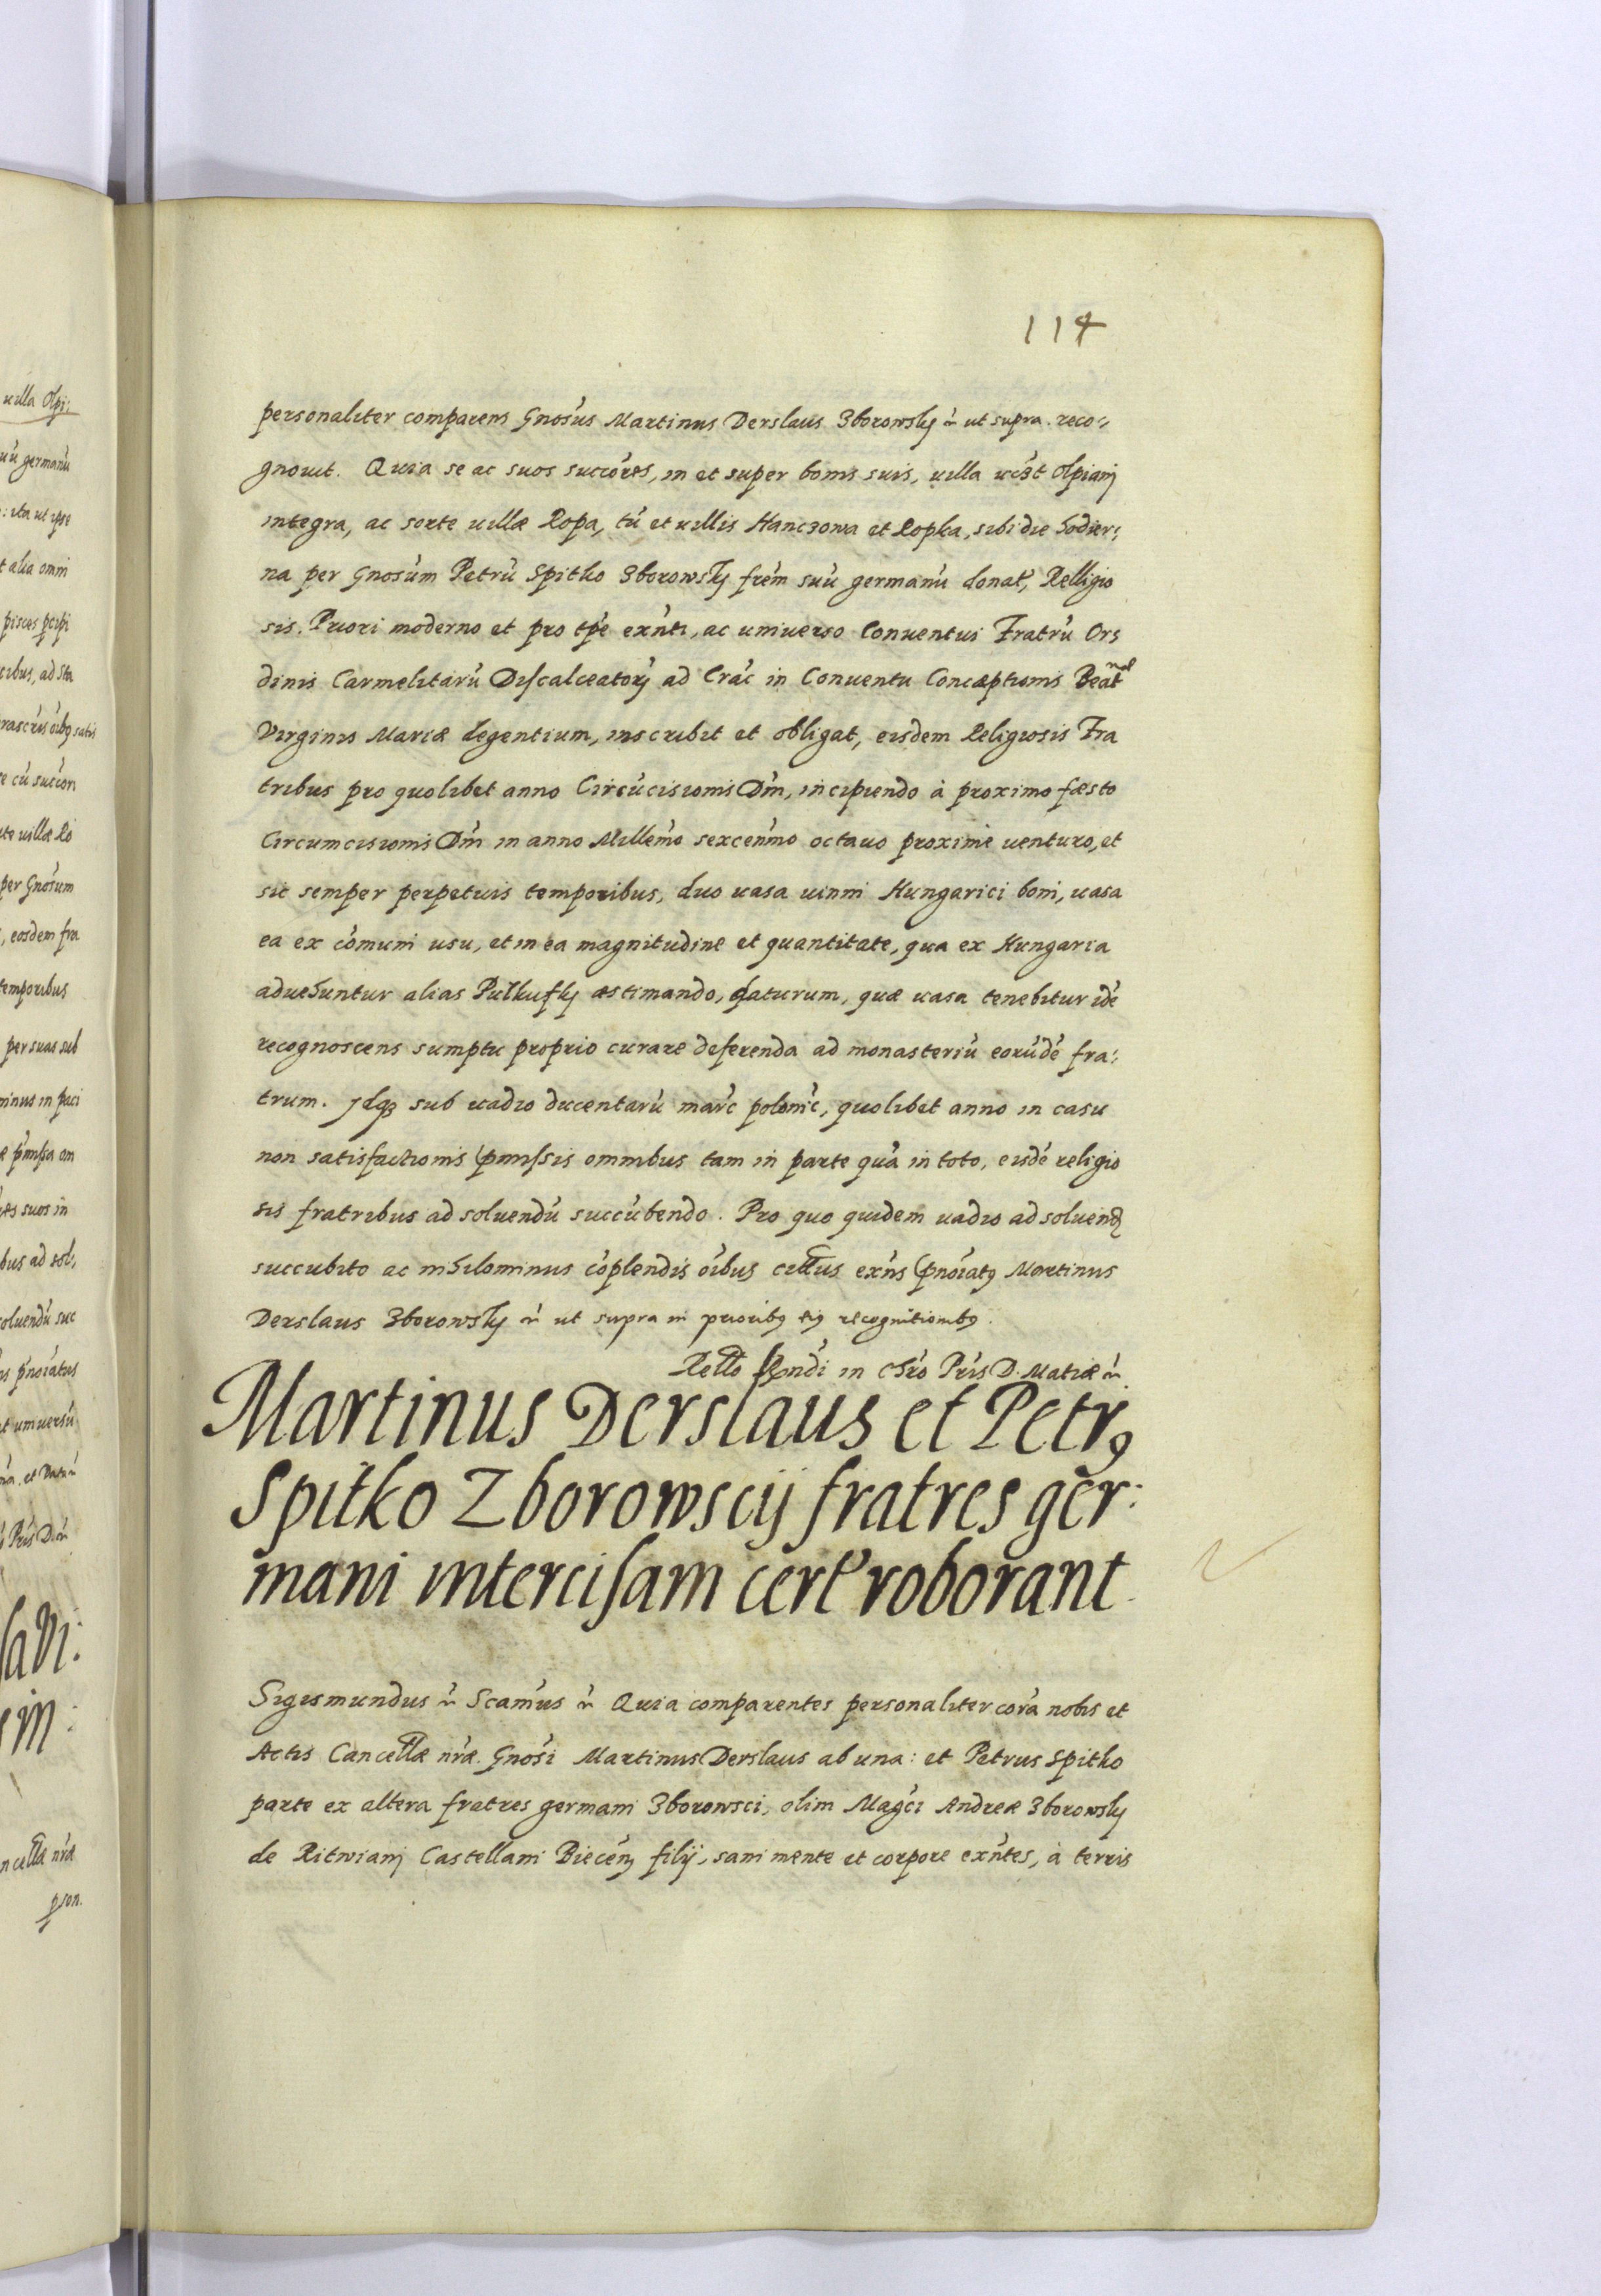 114
personaliter comparens Gnosus Martinus Derslaus Zborowsky ut supra. reco=
gnouit. Quia se ac suos succores, in et super bonis suis, uilla Olpiany
integra, ac sorte uillæ Ropa, tu et uillis Hanczowa et Ropka, sibi die hodier=
na per Gnosum Petru Spitko Zborowsky frem suu germanu donat, Relligio
sis. Priori moderno et pro tpe exnti, ac uniuerso Conuentui Fratru Or=
dinis Carmelitaru Discalceatoru ad Crac in Conuentu Conceptionis Beat
Virginis Mariæ degentium, inscribit et obligat, eisdem Religiosis Fra
tribus pro quolibet anno Circucisionis Dni, incipiendo à proximo fæsto
Circumcisionis Dni in anno Millemo sexcenmo octauo proxime uenturo, et
sic semper perpetuis temporibus, duo uasa uinni Hungarici boni, uasa
ea ex comuni usu, et in ea magnitudine et quantitate, qua ex Hungaria
aduehuntur alias Pulkufky æstimando, daturum, quæ uasa tenebitur ide
recognoscens sumptu proprio curare deferenda ad monasteriu eorude fra=
trum. Idq3 sub uadio ducentaru marc polonic, quolibet anno in casu
non satisfactionis pmissis omnibus tam in parte qua in toto, eisde religio
sis fratribus ad soluendu succubendo. Pro quo quidem uadio ad soluend
succubito ac nihilominus coplendis oibus exns pnoiat9 Martinus
Derslaus Zborowsky ut supra in priorib9 ei9 recognitionib9.
Rello Rndi in Chro Pris D. Matiæ
Martinus Derslaus et Petr9
Spitko Zborowscij fratres ger:
mani intercisam cert roborant
Sigismundus Scamus Quia comparentes personaliter cora nobis et
Actis Cancellæ nræ. Gnosi Martinus Derslaus ab una: et Petrus Spitko
parte ex altera fratres germani Zborowsci, olim Magci Andreæ Zborowsky
de Ritwiany Castellani Biecen filij, sani mente et corpore exntes, à terris
uilla Olpi:
germanu
ita ut ipse
t alia omni
pisces
cibus, ad sta
satis
cu succon
uillæ Ro
per Gnosum
eosdem fra
temporibus
per suas sub
minus in
pmissa om
suos in
bus ad sol,
soluendu suc
pnoiatus
et uniuersu
et Datu
Pris D
ncellæ nræ
pson.